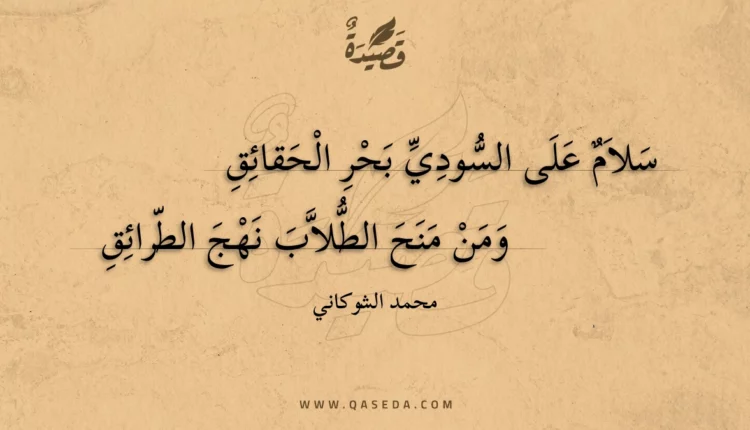 قَصِيْدَةٌ
سَلاَمٌ عَلَى السُّودِيِّ بَحْرِ الْحَقائِقِ
وَمَنْ مَنَحَ الطُّلاَّبَ نَهْجَ الطّرائِقِ
محمد الشوكاني
WWW.QASEDA.COM